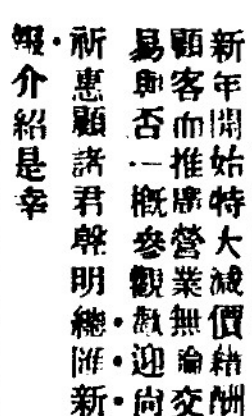 新年開始特大減價結酬
顧客而推廣營業無論交
易與否一概參觀歡迎尚
祈惠顧諸君聲明總滙新
報介紹是幸